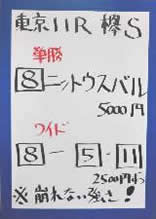 東京11R 欅S
単勝
8 ニットウスバル
5000円
ワイド
8-5-11
2500円ずつ
※崩れない強さ!